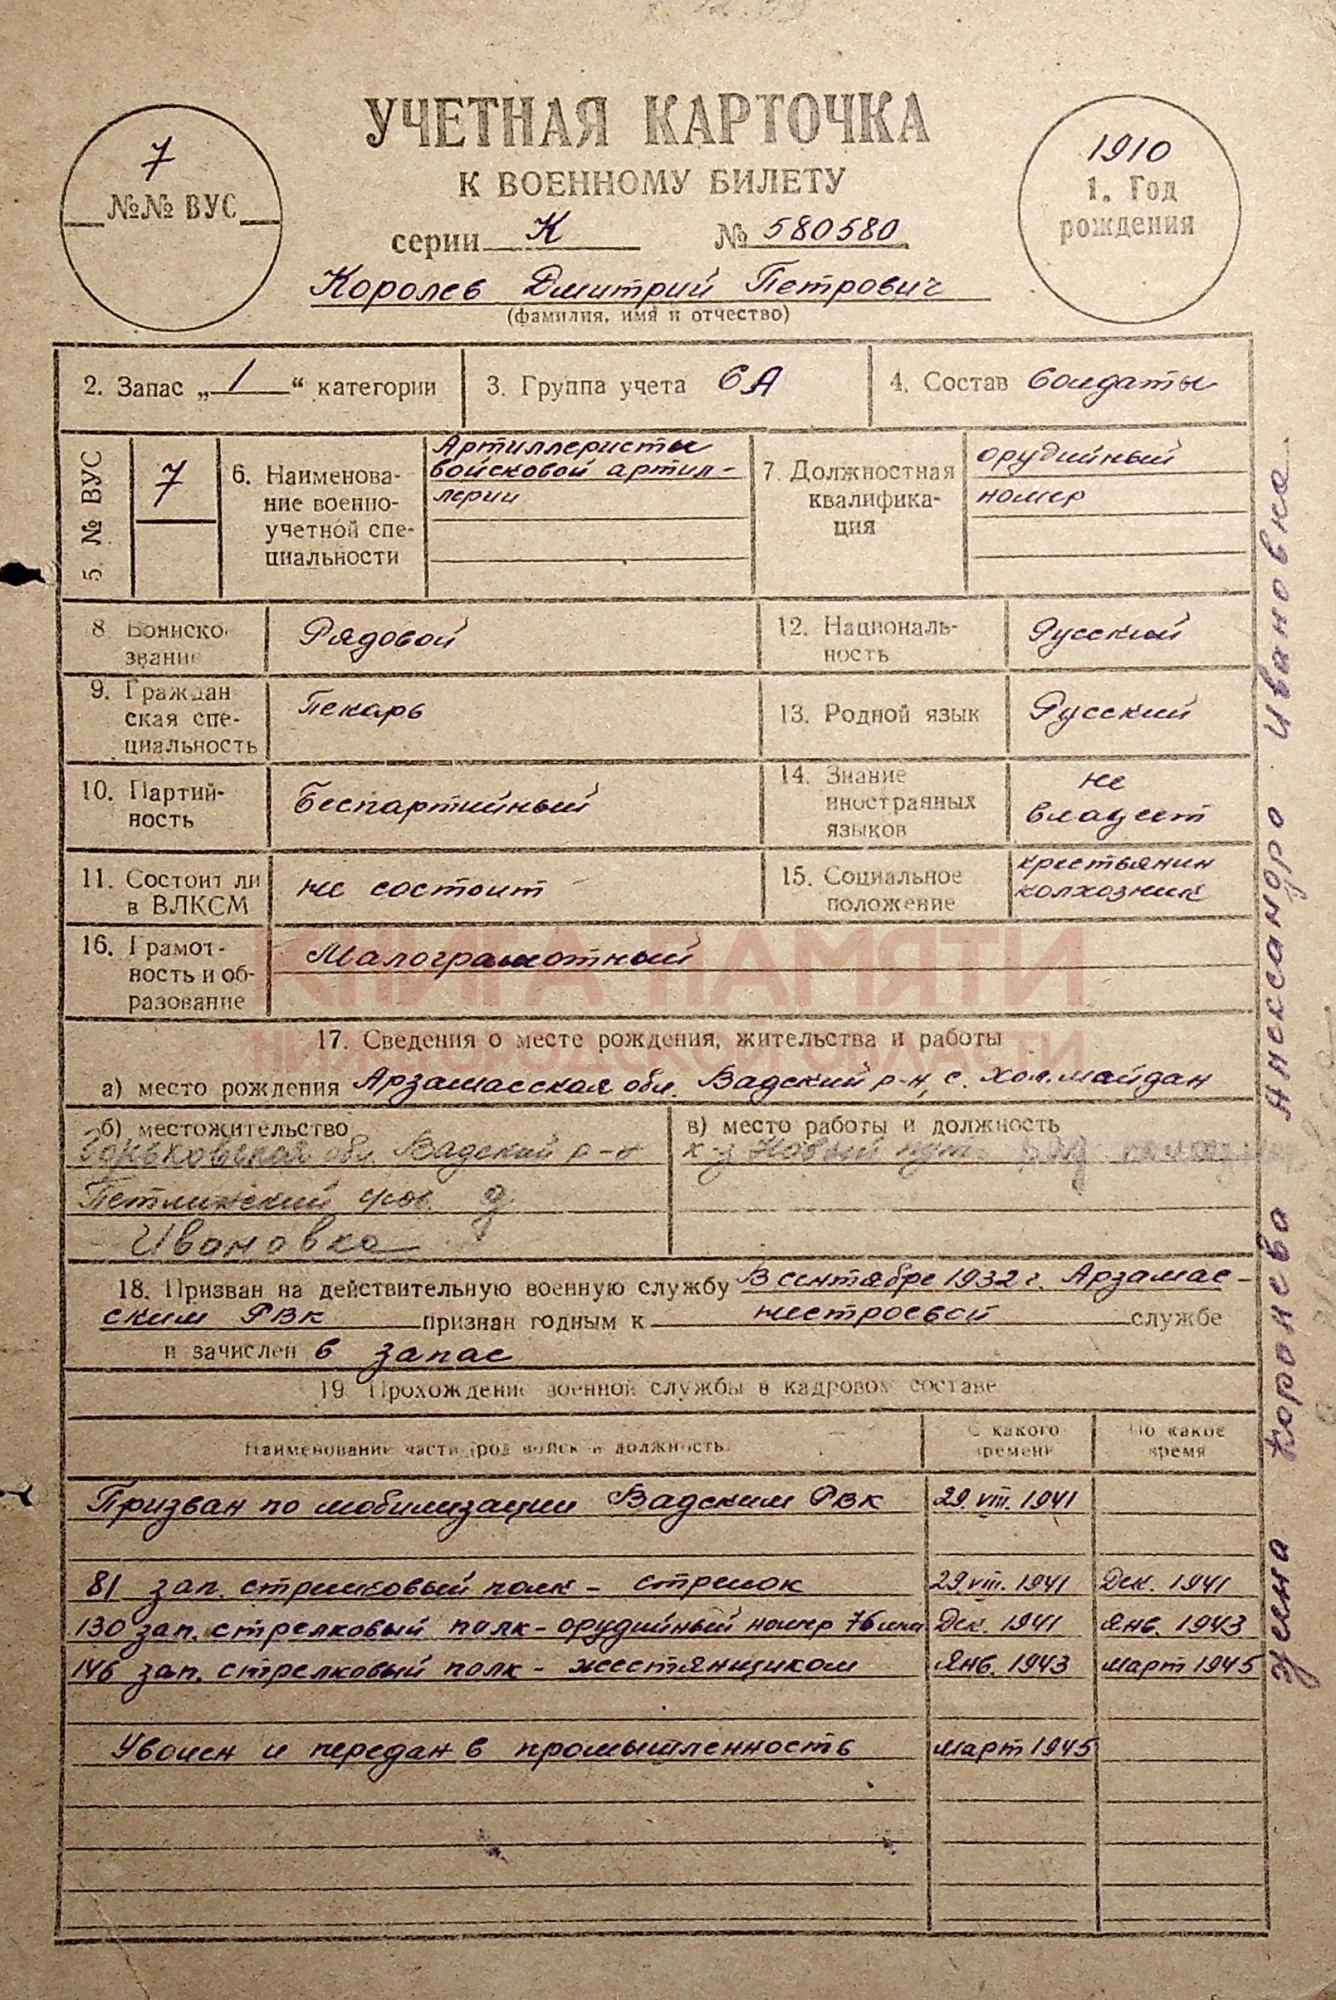 УЧЕТНАЯ КАРТОЧКА
К ВОЕННОМУ БИЛЕТУ
серии К № 580580
7
№№ ВУС
1910
1. Год
рождения
Королев Дмитрий Петрович
(фамилия, имя и отчество)
2. Запас „1“ категории
3. Группа учета 6А
4. Состав Солдаты
5. № ВУС
7
6. Наименова-
ние военно-
учетной спе-
циальности
Артиллеристы
войсковой артил-
лерии
7. Должностная
квалифика-
ция
орудийный
номер
8 Воинско.
звание
Рядовой
12. Националь-
ность
Русский
9. Граждан
ская спе-
циальность
Пекарь
13. Родной язык
Русский
10. Партий-
ность
Беспартийный
14. Знание
иностранных
языков
не
владеет
11. Состоит ли
в ВЛКСМ
не состоит
15. Социальное
положение
крестьянин
колхозник
16. Грамот-
ность и об-
разование
Малограмотный
КНИГА ПАМЯТИ
НИЖЕГОРОДСКОЙ ОБЛАСТИ
17. Сведения о месте рождения, жительства и работы
а) место рождения Арзамасская обл. Вадский р-н, с. Хол. майдан
б) местожительство
Горьковская обл. Вадский р-н
Петлинский
д
Ивановка
в) место работы и должность
к-з Новый путь ряд
18. Призван на действительную военную службу В сентябре 1932 г. Арзамас-
ским РВК признан годным к нестроевой службе
и зачислен в запас
19. Прохождение военной службы в кадровом составе
Наименование части (род войск и должность
С какого
времени
По какое
время
Призван по мобилизации Вадским РВК 29. VIII. 1941
81 зап. стрелковый полк - стрелок 29. VIII. 1941 Дек. 1941
130 зап. стрелковый полк - орудийный номер 76 мм Дек. 1941 Янв. 1943
146 зап. стрелковый полк - жестянщиком Янв. 1943 Март 1945
Уволен и передан в промышленность Март 1945
жена Королева Александра Ивановна